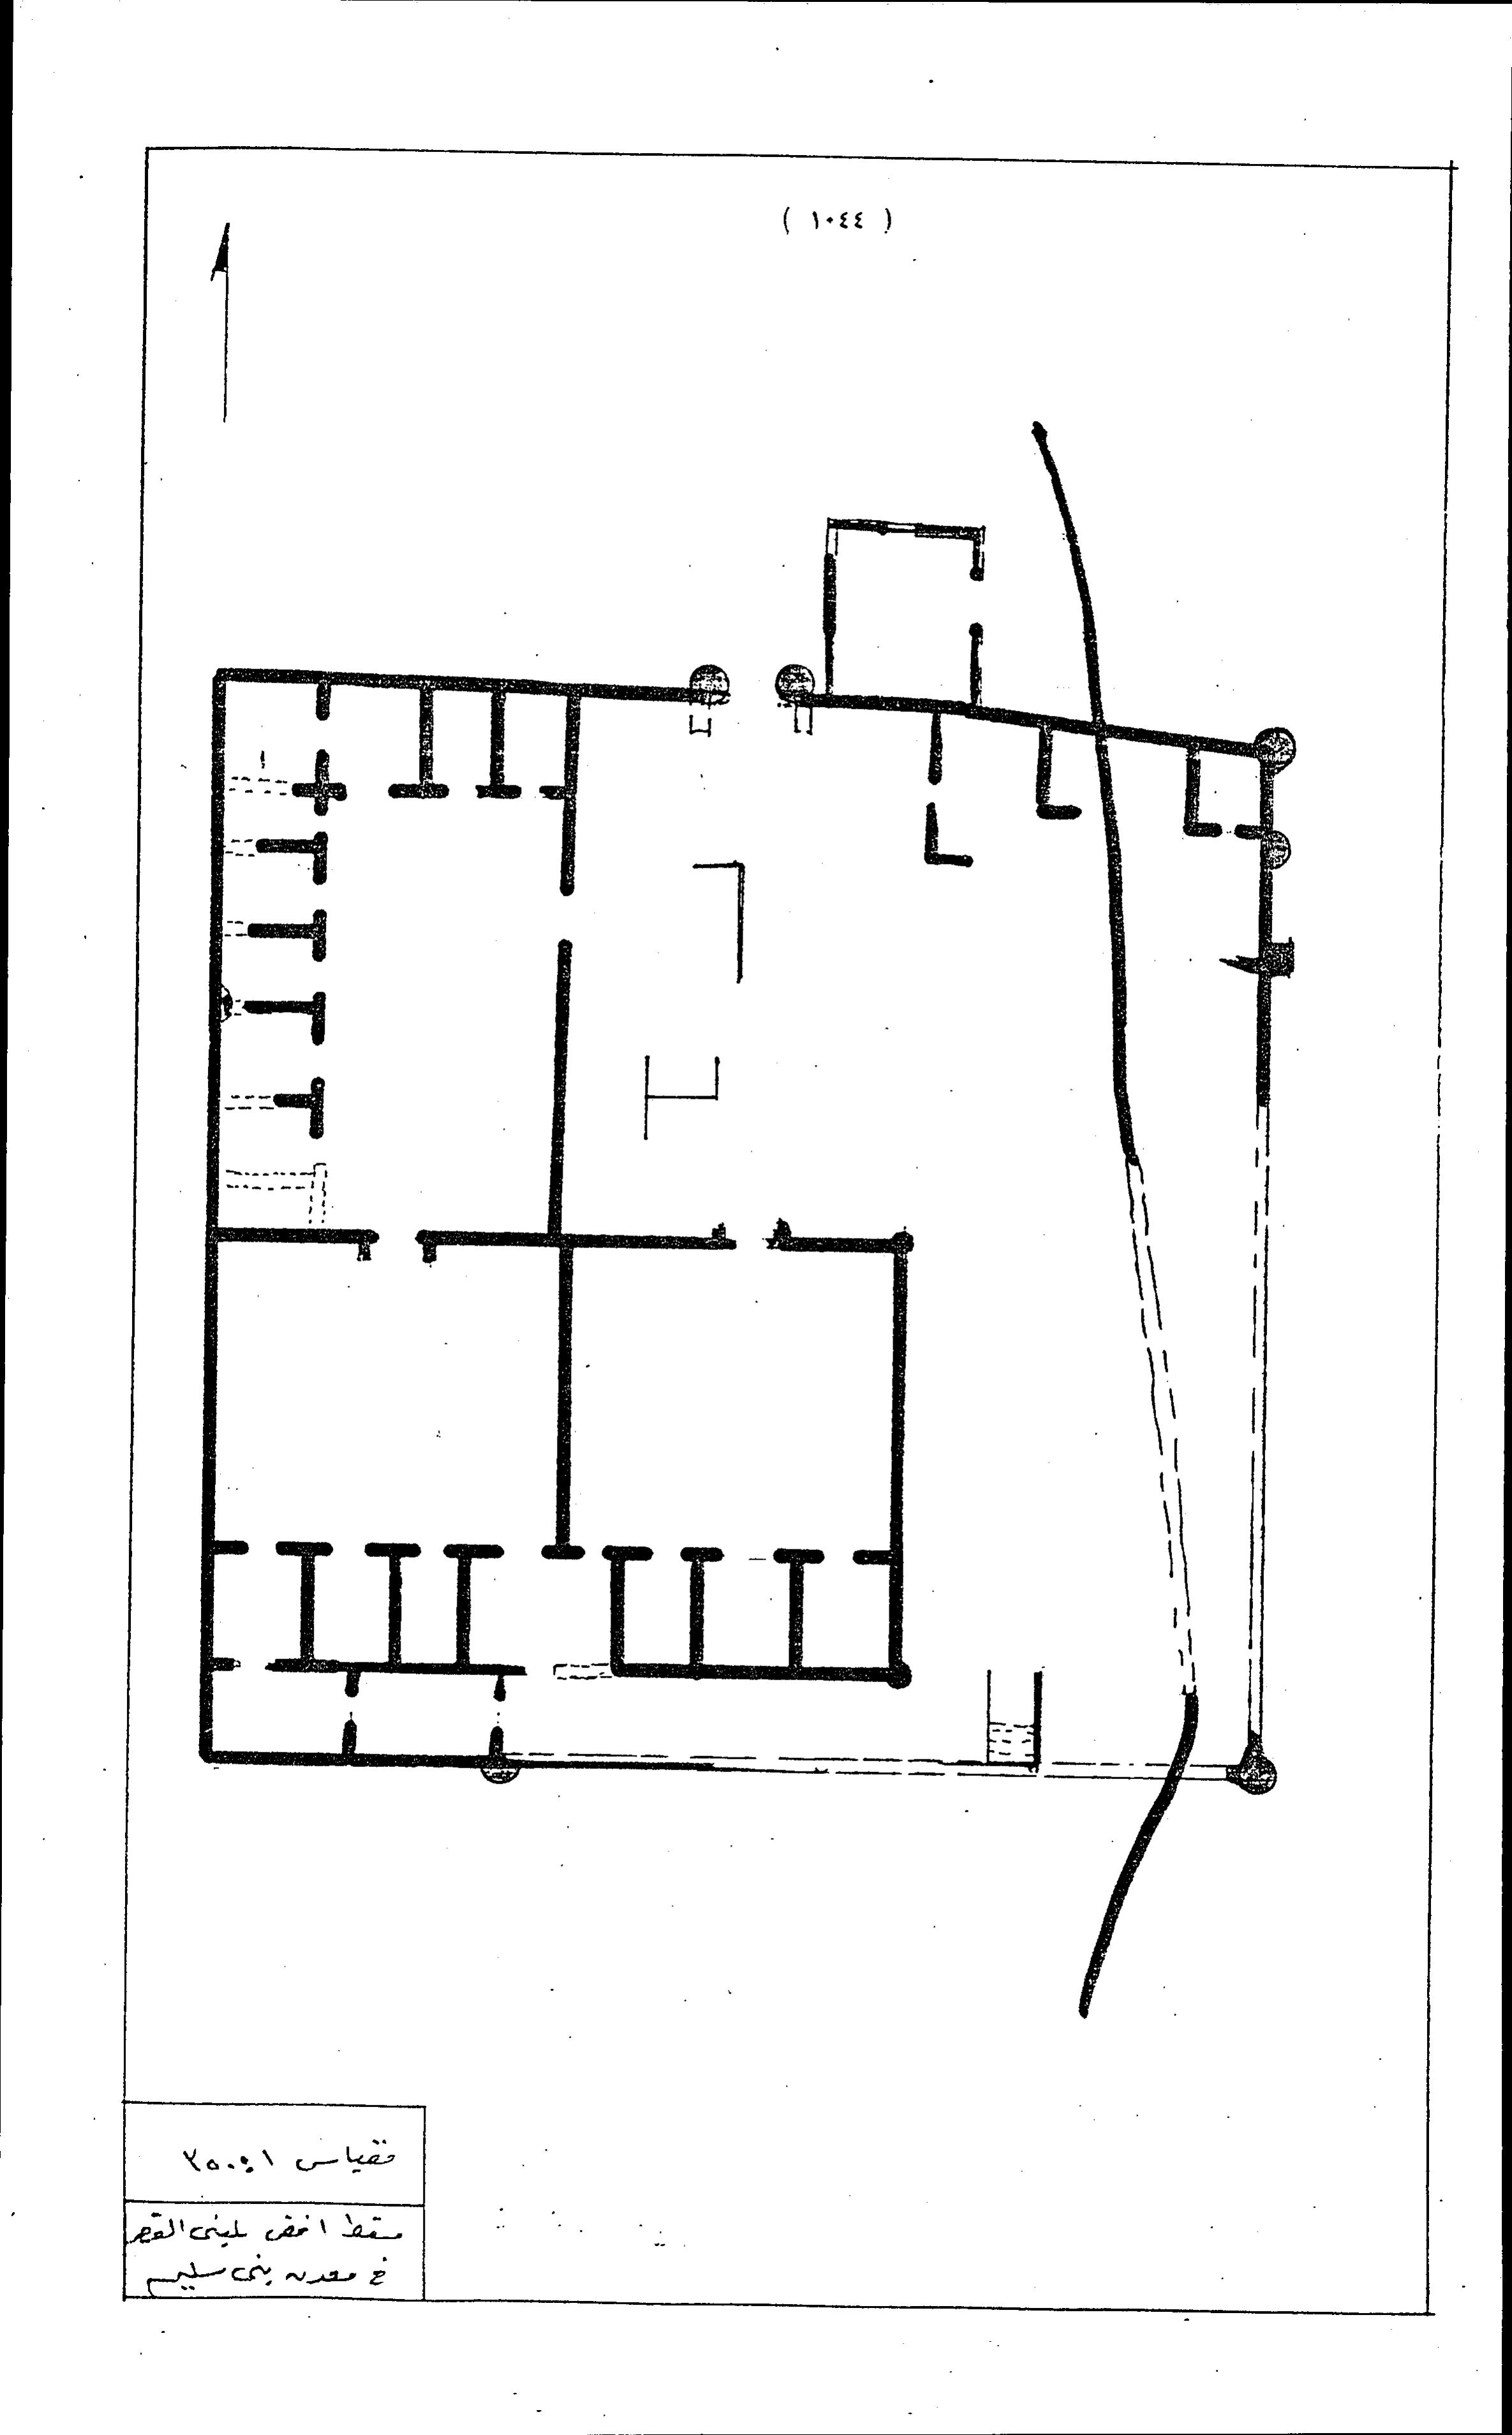 ( ١٠٤٤ )
مقياس ١:٢٥٠
مسقط افقى لمبنى القصر
فى معدن بنى سليم